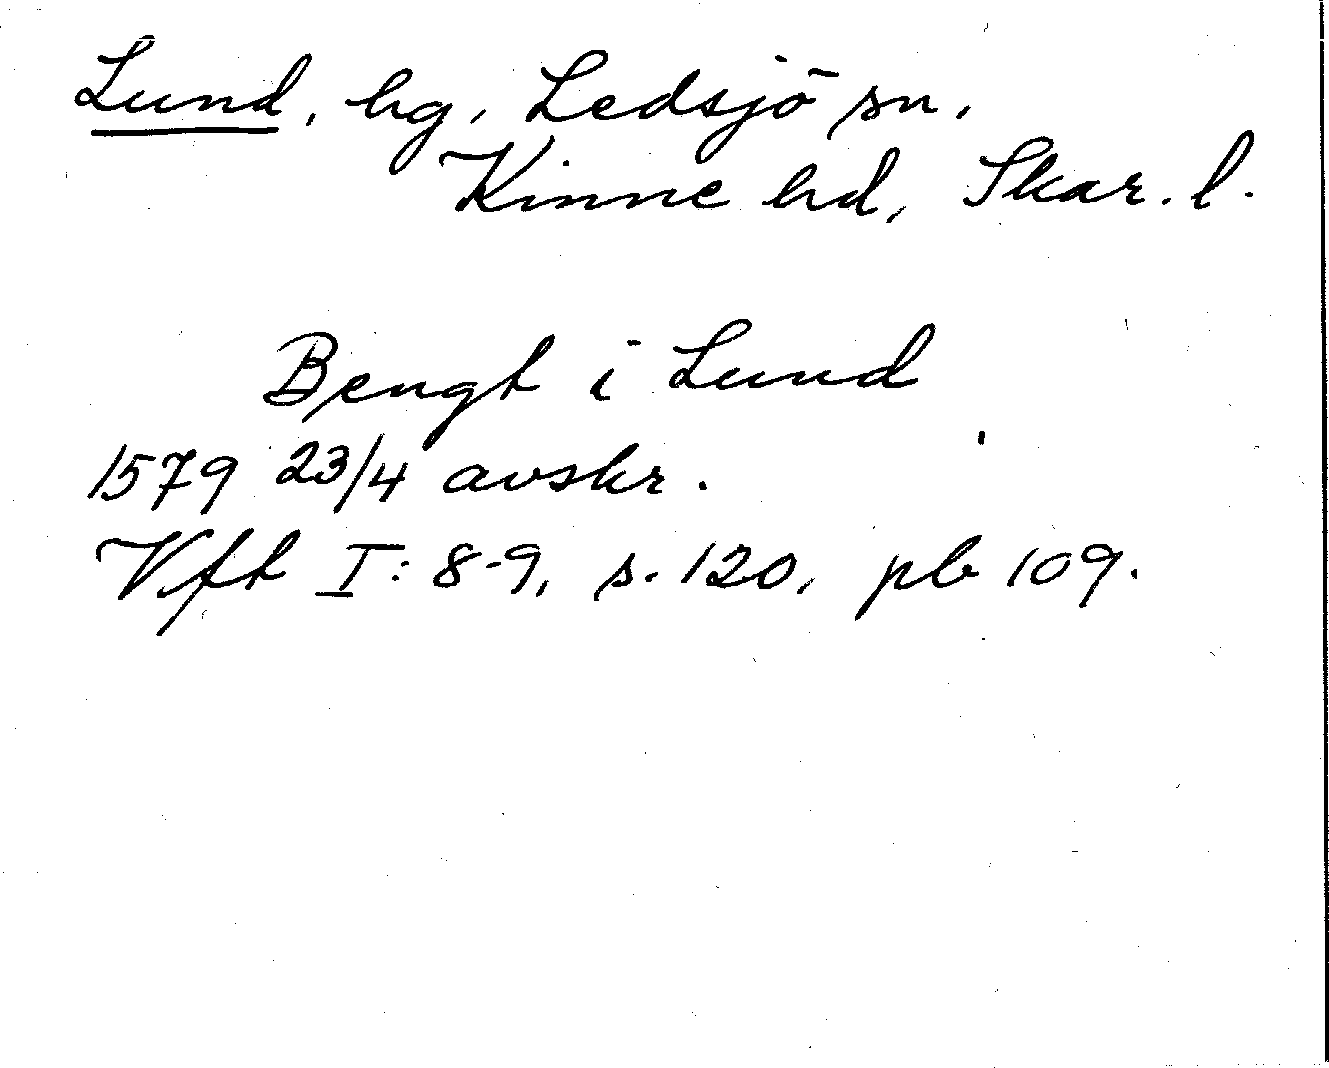 Lund, hg, Ledsjö sn,
Kinne hd, Skar. l.
Bengt i Lund
1579 23/4 avskr.
Vft I: 8-9, s. 120, pb 109.